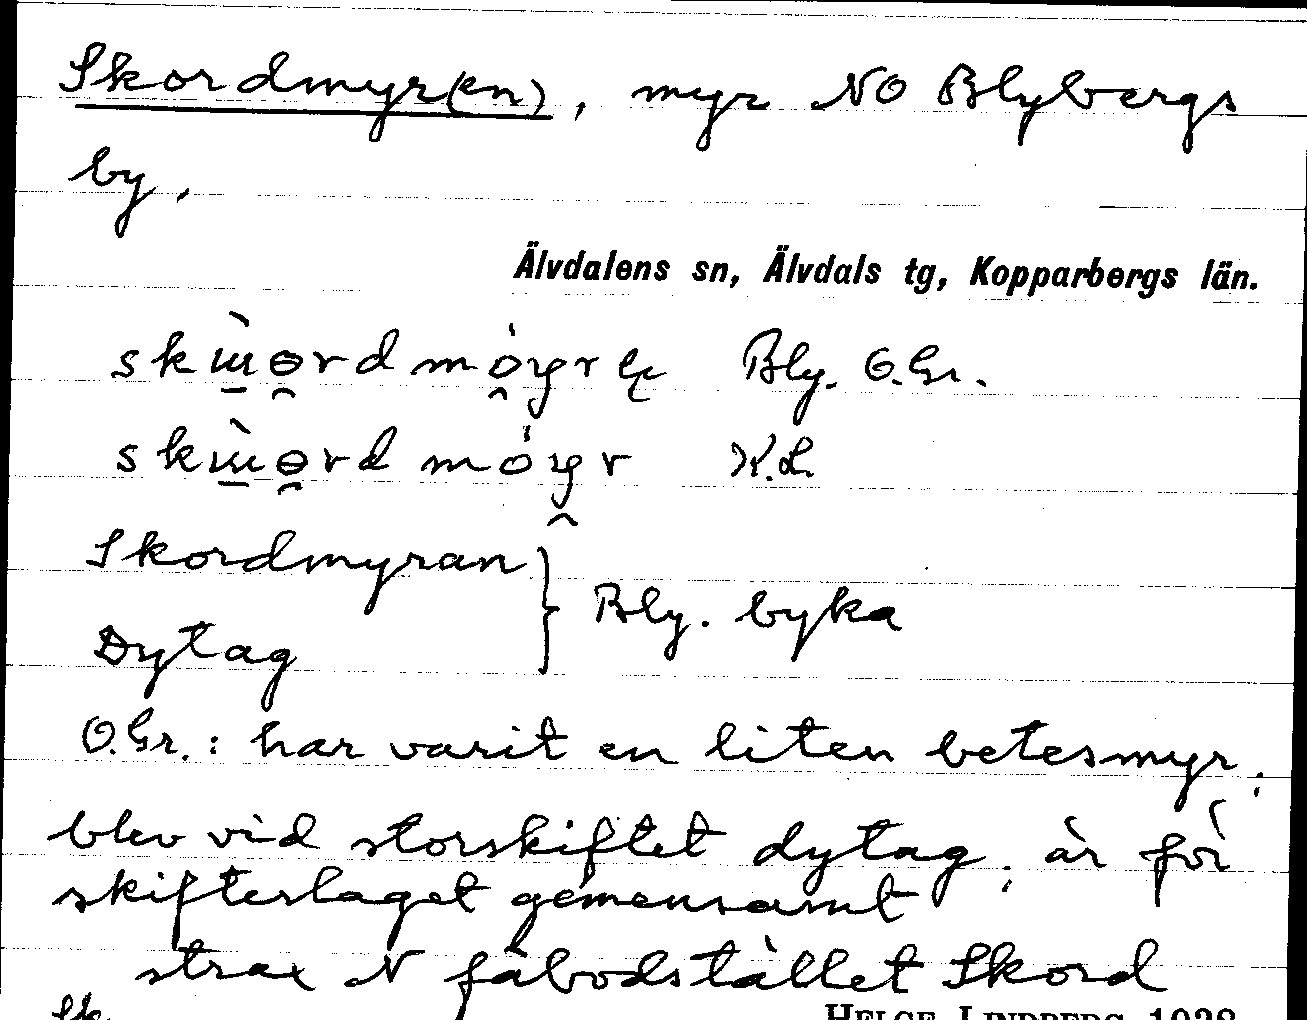 Skordmyr(en), myr NO Blybergs
by,
Älvdalens sn, Älvdals tg, Kopparbergs län.
Bly. O.Gr.
K.L.
Skordmyran
Dytag } Bly. byka
O.Gr.: har varit en liten betesmyr;
blev vid storskiftet dytag; är för
skifteslaget gemensamt
strax N fäbodstället Skord
HELGE LINDBERG 1928